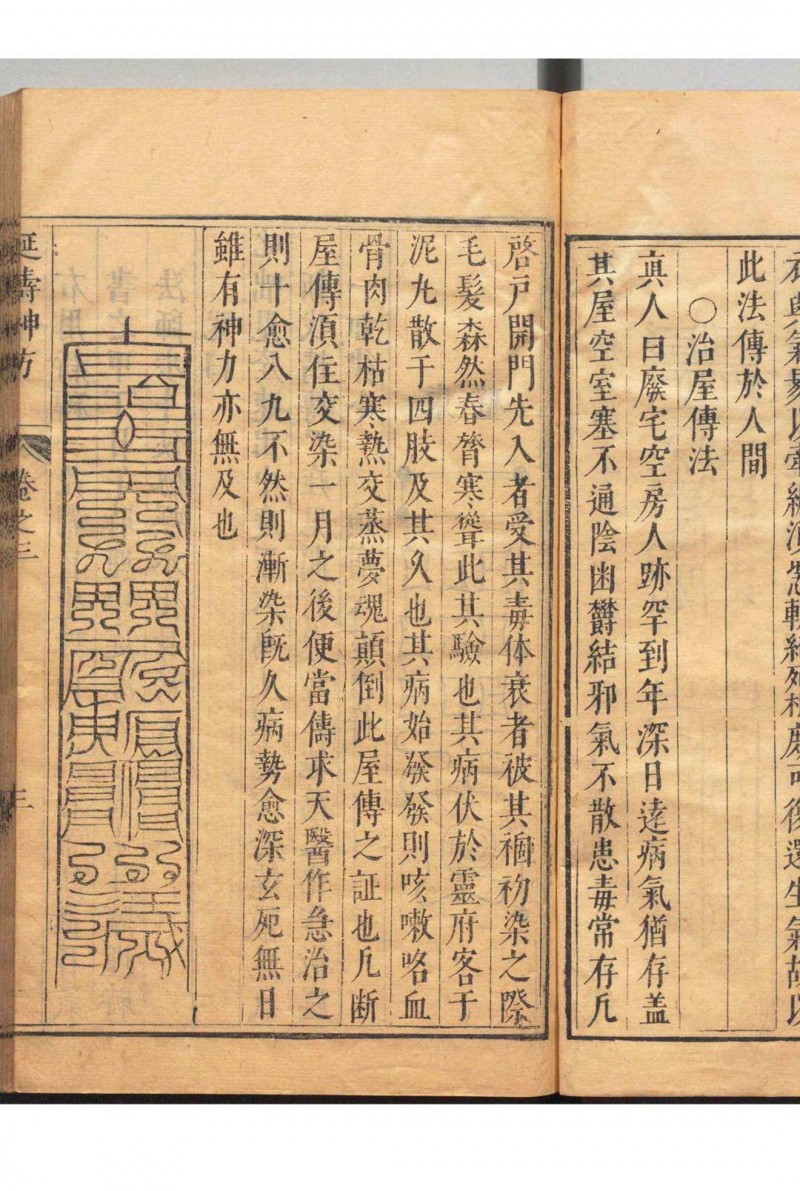 衣與氣易以牽纏須怎輕絕死根處可復還生氣故以
此法傳於人間
○治屋傳法
真人曰廢宅空房人跡罕到年深日逺病氣猶存盖
其屋空室塞不通陰幽欝結邪氣不散患毒常存凢
啓戸開門先入者受其毒体衰者被其禍初染之際
毛髮森然春膂寒聳此其驗也其病伏於靈府客于
泥九散于四肢及其久也其病始發發則咳嗽咯血
骨肉乾枯寒熱交蒸夢魂顛倒此屋傳之証也凢断
屋傳須住交染一月之後便當儔求天醫作急治之
則十愈八九不然則漸染既久病勢愈深玄死無日
雖有神力亦無及也
延壽神方
卷之三
三